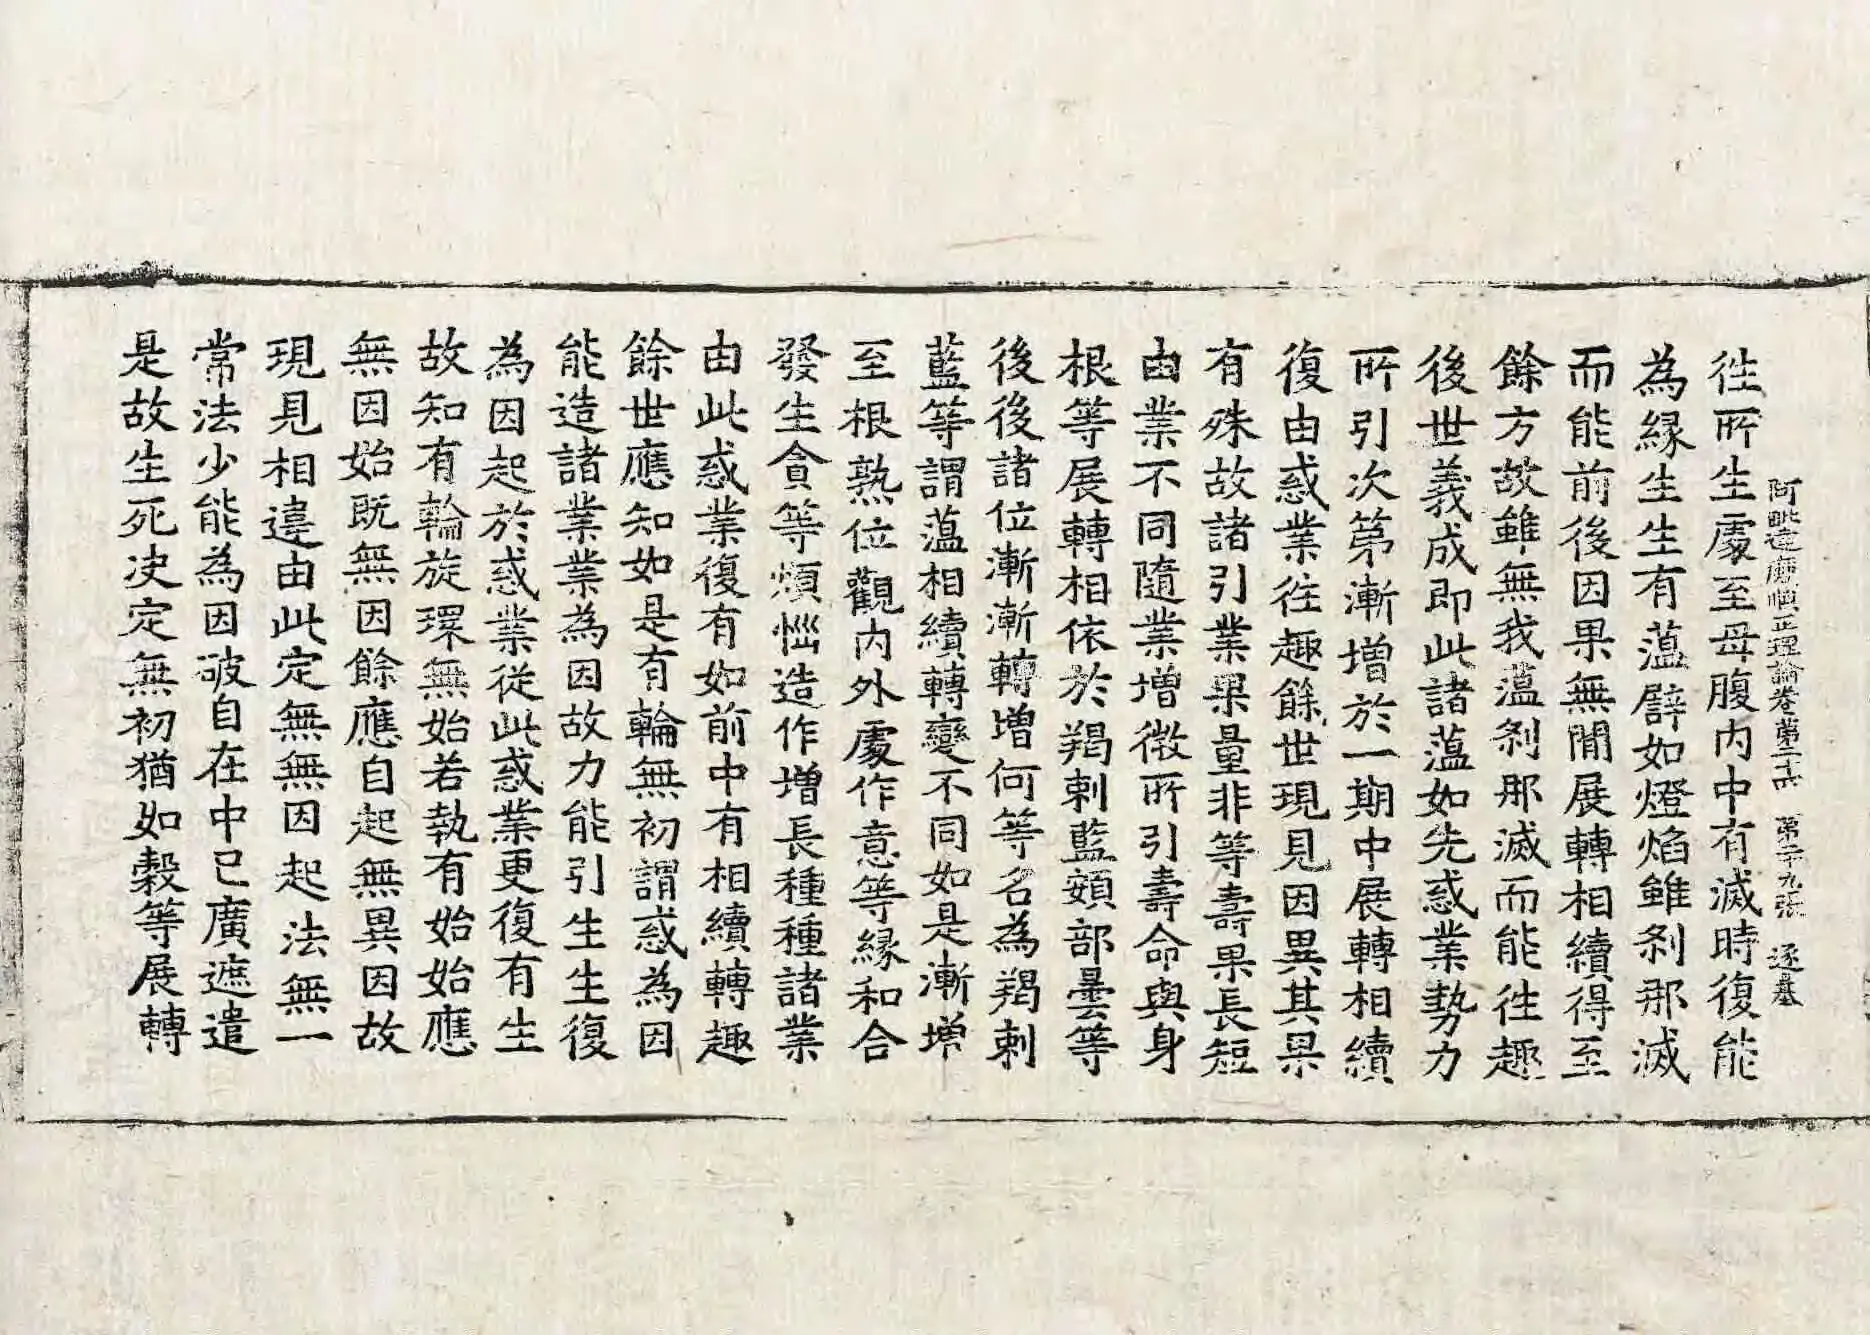 阿毗達磨順正理論卷第二十四 第二十九張 逐
往所生處至母腹内中有滅時復能
為緣生生有薀譬如燈焰雖剎那滅
而能前後因果無閒展轉相續得至
餘方故雖無我薀剎那滅而能往趣
後世義成即此諸薀如先惑業勢力
所引次第漸增於一期中展轉相續
復由惑業往趣餘世現見因異其果
有殊故諸引業果量非等壽果長短
由業不同隨業增微所引壽命與身
根等展轉相依於羯剌藍頞部曇等
後後諸位漸漸轉增何等名為羯剌
藍等謂薀相續轉變不同如是漸增
至根熟位觀内外處作意等緣和合
發生貪等煩惱造作增長種種諸業
由此惑業復有如前中有相續轉趣
餘世應知如是有輪無初謂惑為因
能造諸業業為因故力能引生生復
為因起於惑業從此惑業更復有生
故知有輪旋環無始若執有始始應
無因始既無因餘應自起無異因故
現見相違由此定無無因起法無一
常法少能為因破自在中已廣遮遣
是故生死決定無初猶如穀等展轉